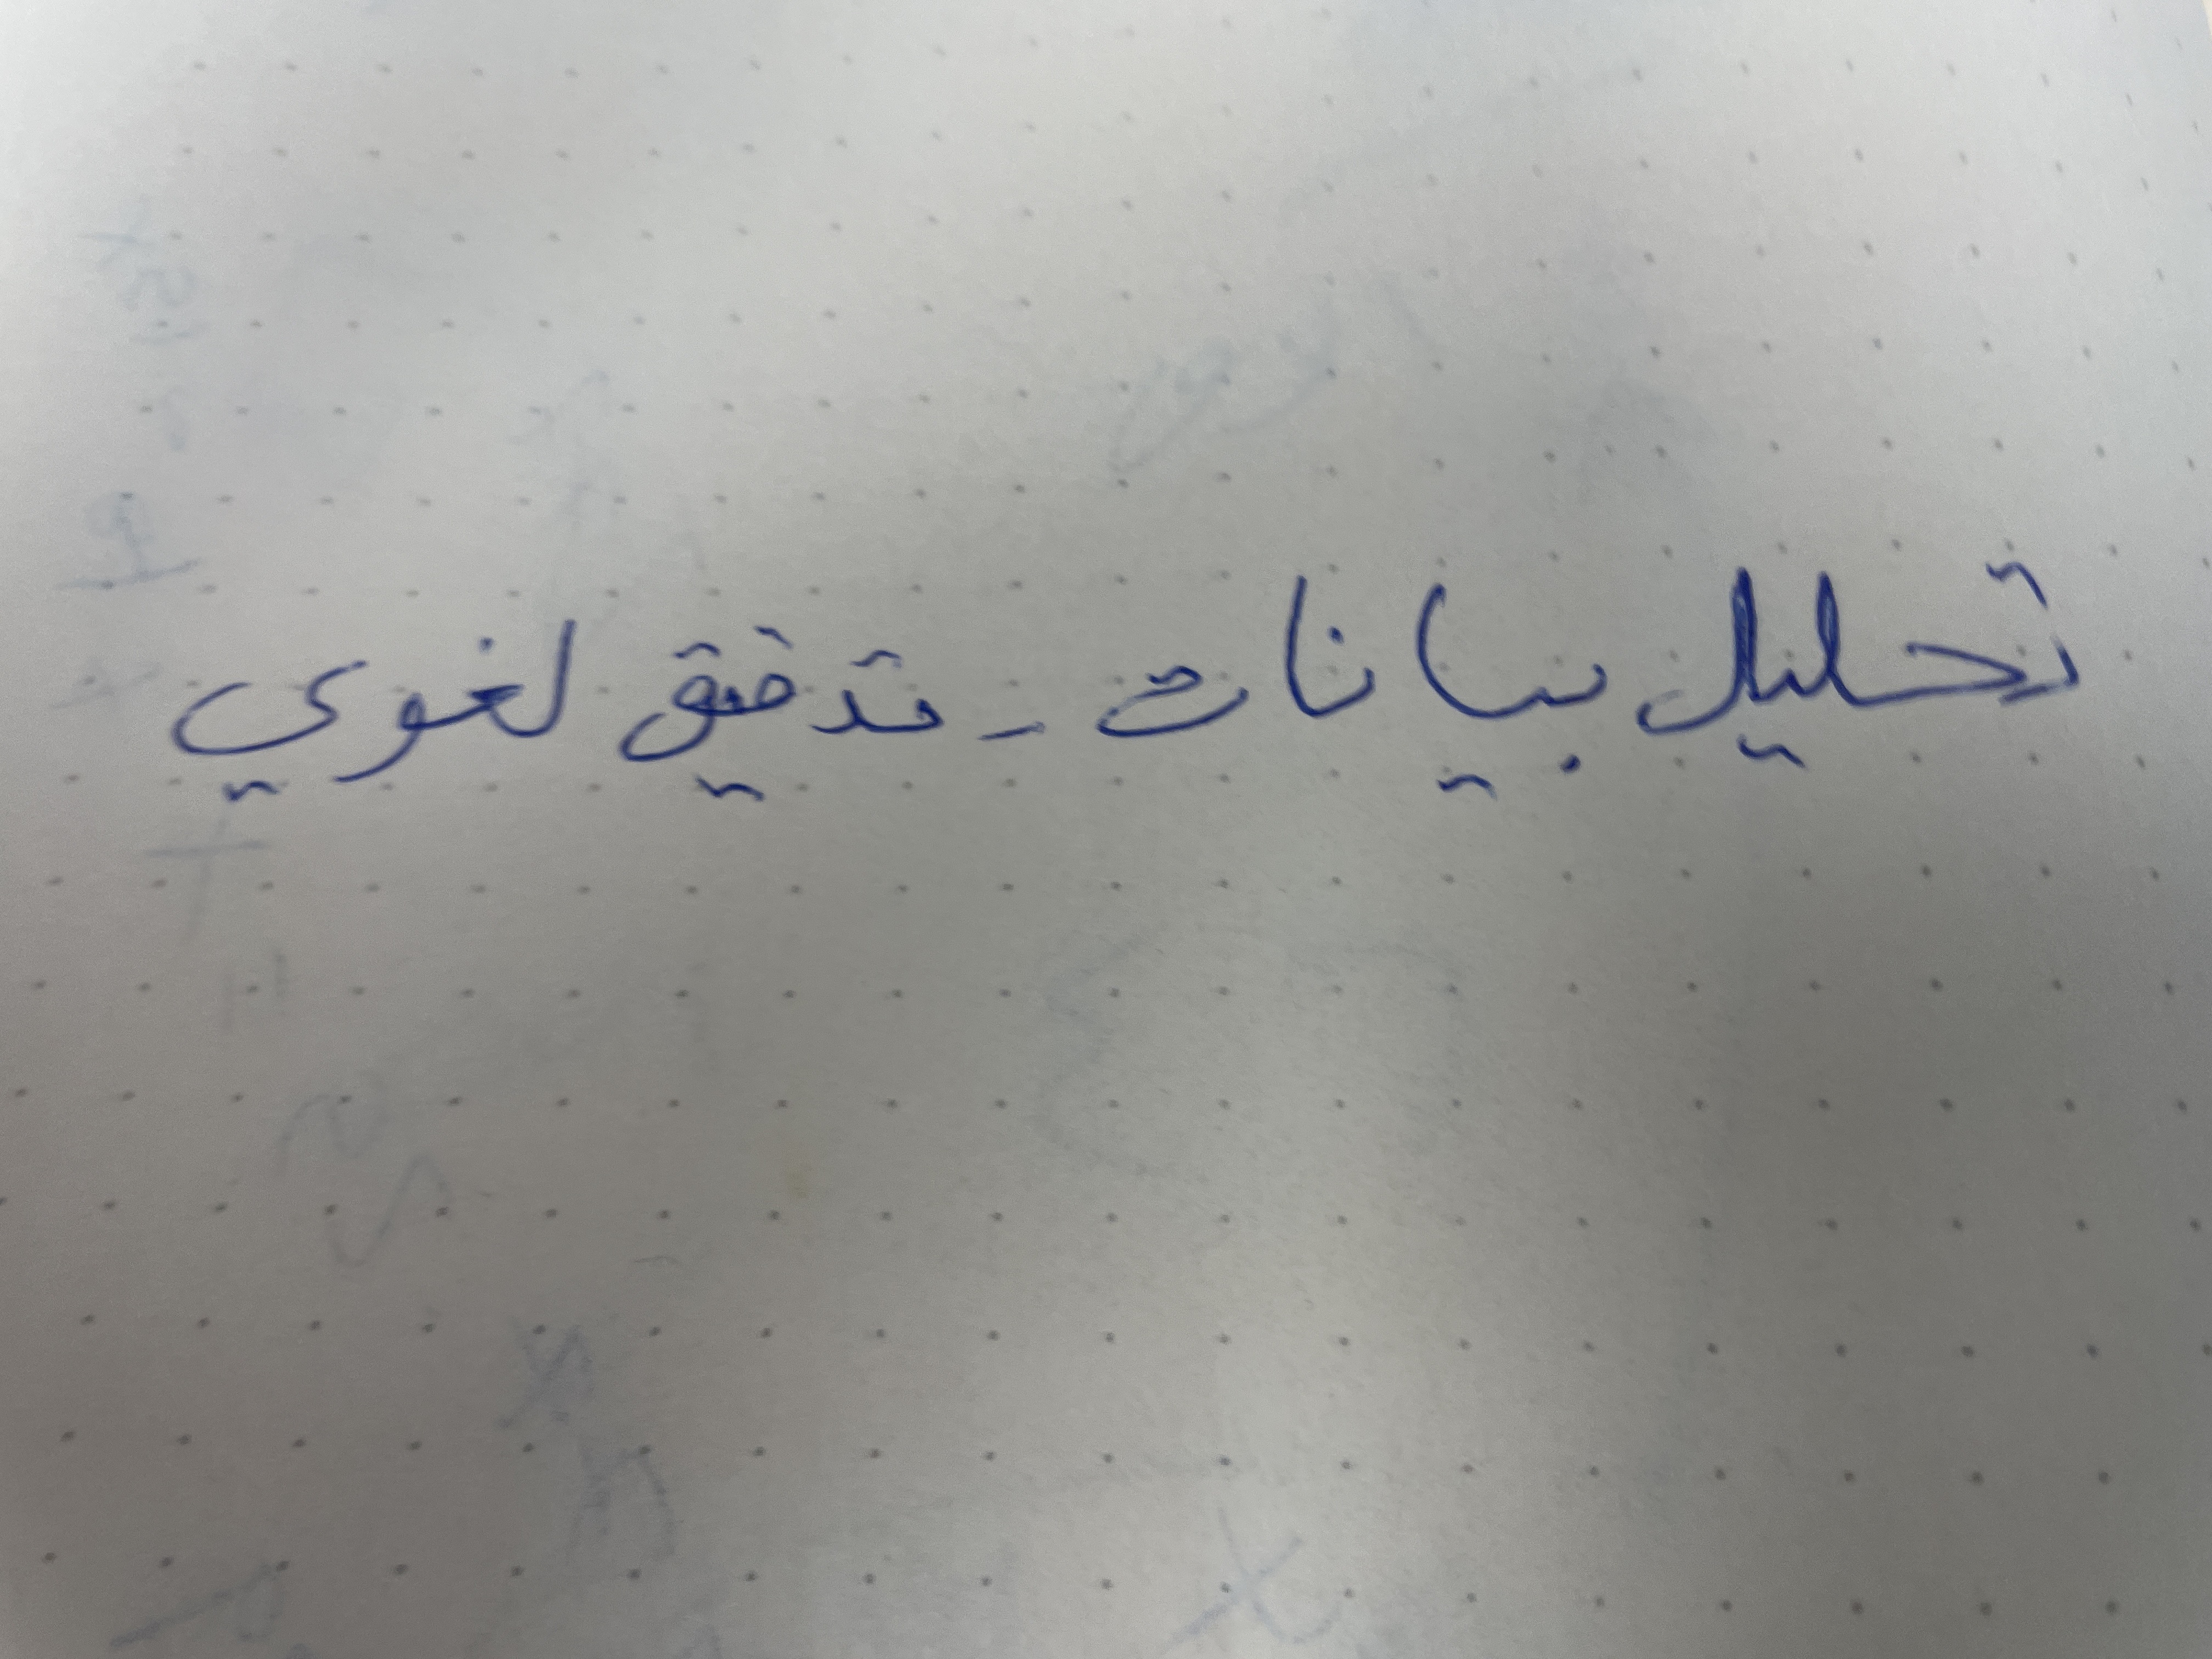 تحليل بيانات - تدقيق لغوي